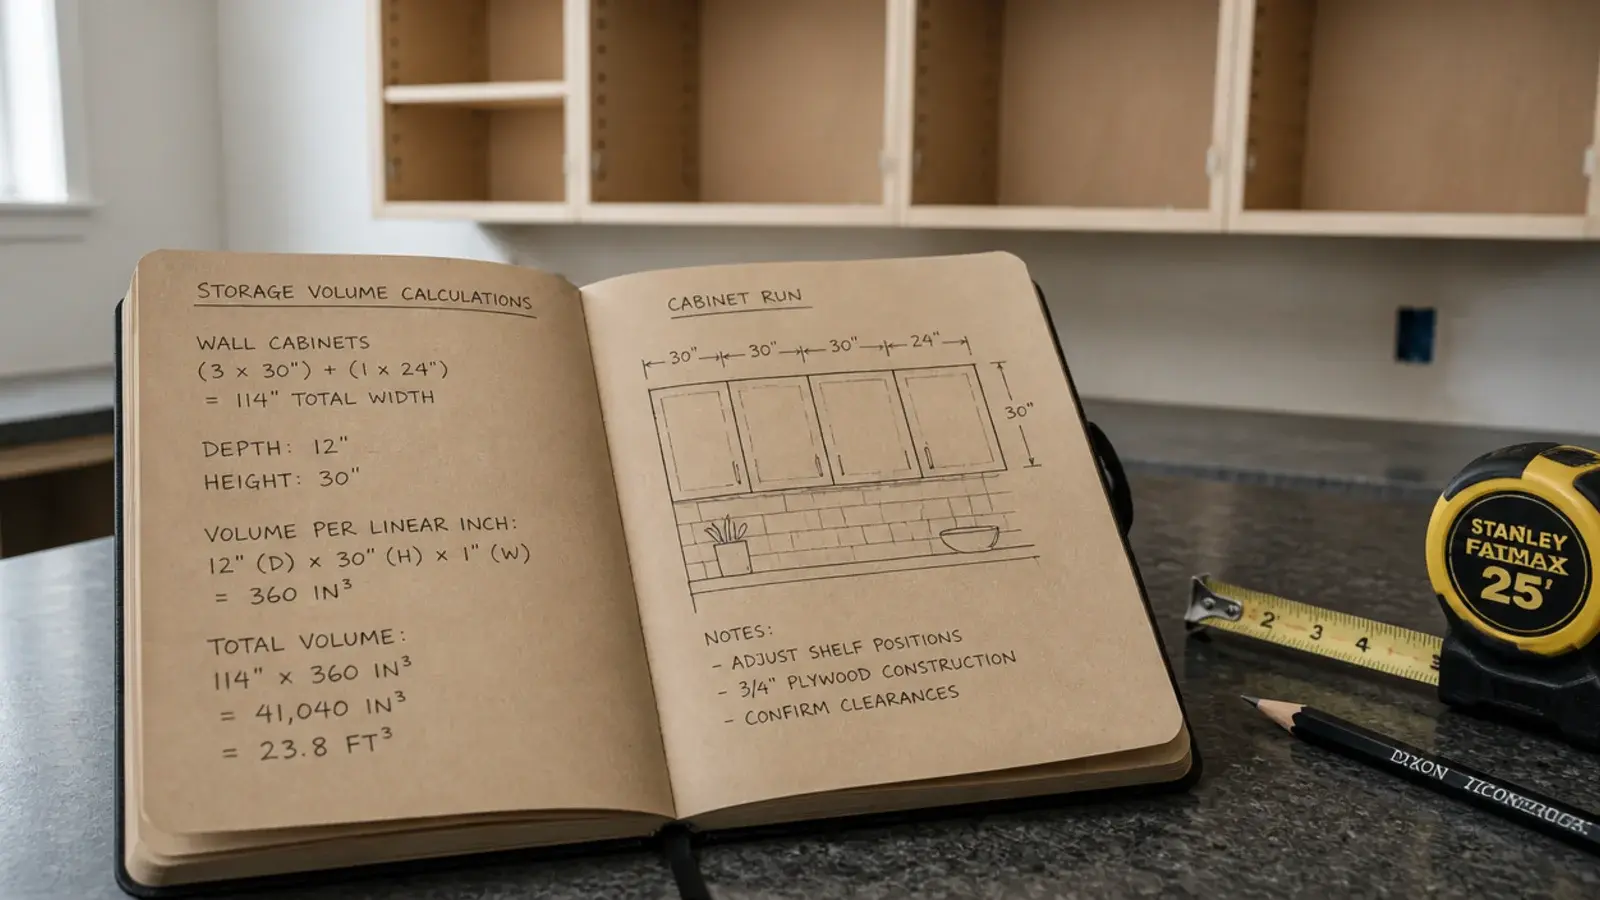 STORAGE VOLUME CALCULATIONS
WALL CABINETS
(3 x 30") + (1 x 24")
= 114" TOTAL WIDTH
DEPTH: 12"
HEIGHT: 30"
VOLUME PER LINEAR INCH:
12" (D) x 30" (H) x 1" (W)
= 360 IN³
TOTAL VOLUME:
114" x 360 IN³
= 41,040 IN³
= 23.8 FT³
CABINET RUN
30" 30" 30" 24"
30"
NOTES:
- ADJUST SHELF POSITIONS
- 3/4" PLYWOOD CONSTRUCTION
- CONFIRM CLEARANCES
STANLEY
FATMAX
25'
2 3 4 5
DIXON TICONDEROGA